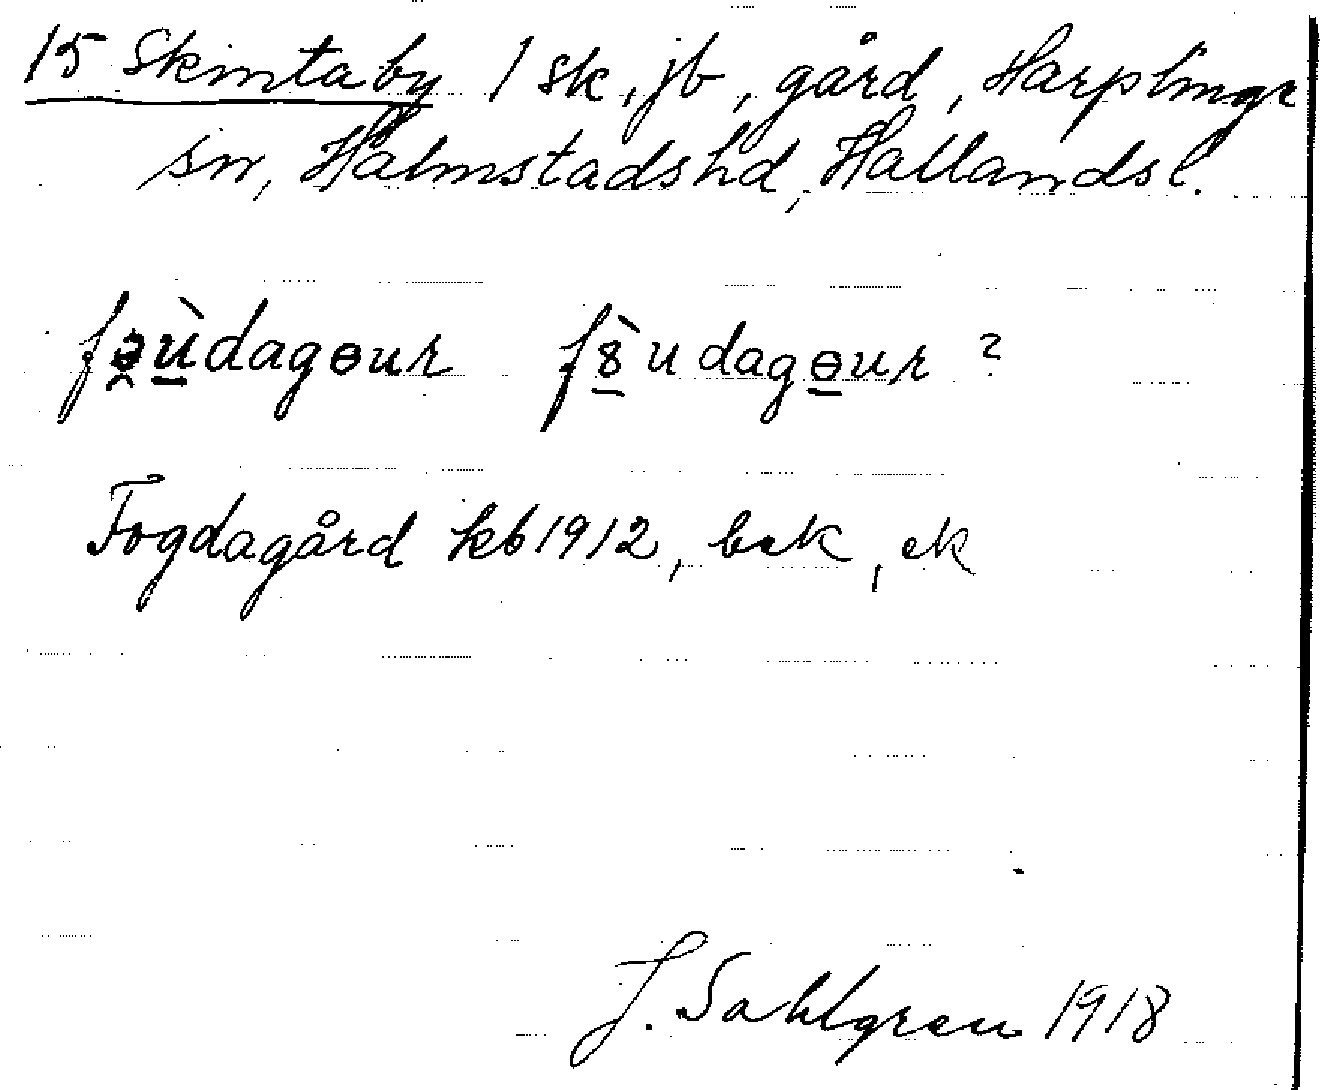 15 Skintaby 1 sk, jb, gård, Harplinge
sn, Halmstads hd, Hallands l.
fəùdagɵur fȣ̀udagɵur ?
Fogdagård kb 1912, bek, ek
J. Sahlgren 1918